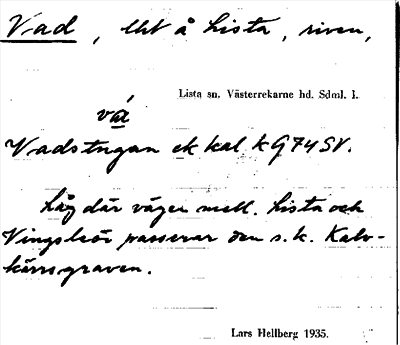 Vad, lht å Lista, riven,
Lista sn. Västerrekarne hd. Sdml. l.
vá̱
Vadstugan ek kal kG74SV.
Låg där vägen mell. Lista och
Vingsleör passerar den s.k. Kalv-
kärrsgraven.
Lars Hellberg 1935.